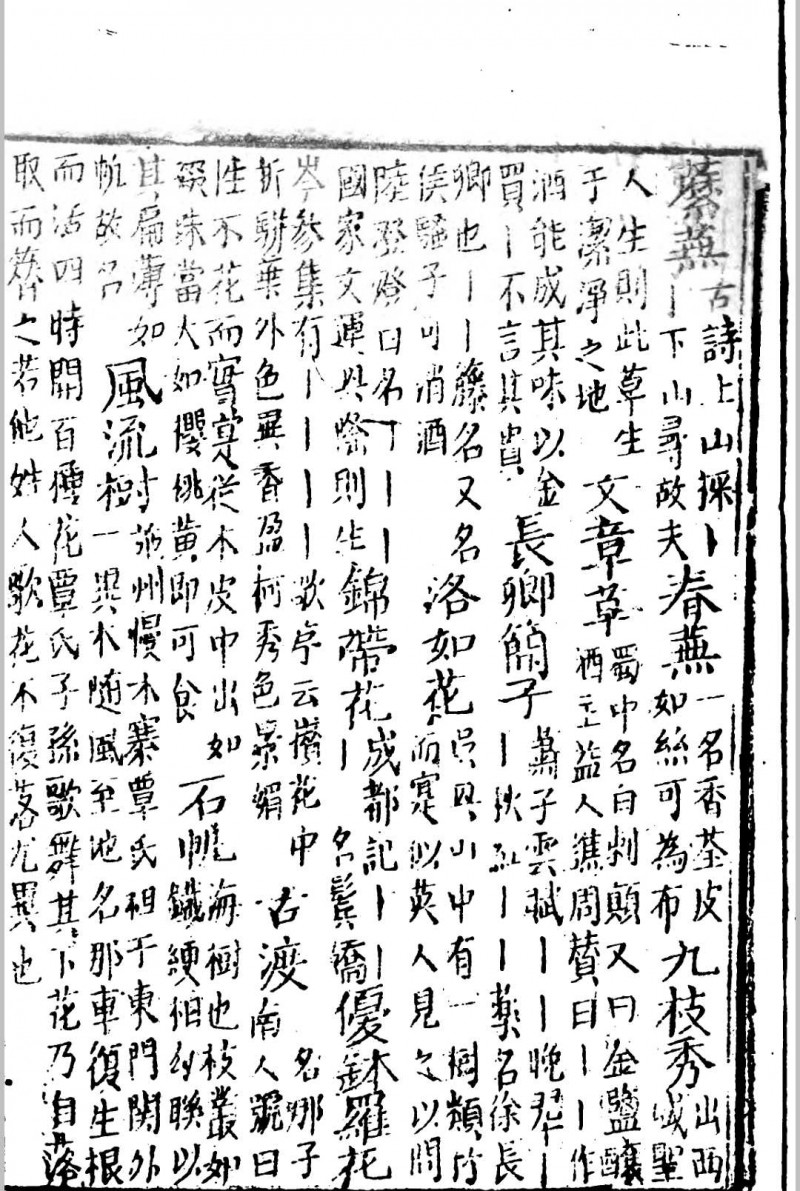 蘼蕪古詩上山採丨丨下山尋故夫春蕪一名香荃皮如絲可為布九枝秀出西域聖
人生則此草生于潔淨之地文章草蜀中名白刺顛又曰金鹽釀酒主益人譙周贊曰丨丨作
酒能成其味以金買丨不言其貴長卿簡子蕭子雲賦丨丨晚翠丨丨扶疏丨丨丨藥名徐長
卿也丨丨籐名又名侯騷子可消酒洛如花吳興山中有一樹類竹而寔似莢人見之以問
陸澄澄曰名丨丨丨國家文運興隆則生錦帶花成都記丨丨丨名鬢嬌優鉢羅花
岑參集有丨丨丨丨歌序云巖花中折駢葉外色異香盈柯秀色景媚古渡名那子南人號曰
性不花而實寔從木皮中出如珠當大如櫻桃黃即可食石帆海樹也枝叢如鐵綆相糾聯以
其扁薄如帆故名風流樹施州慢水寨覃氏祖于東門關外一異木隨風至地名那車復生根
而活四時開百種花覃氏子孫歌舞其下花乃自落取而簪之若他姓人歌花不復落尤異也